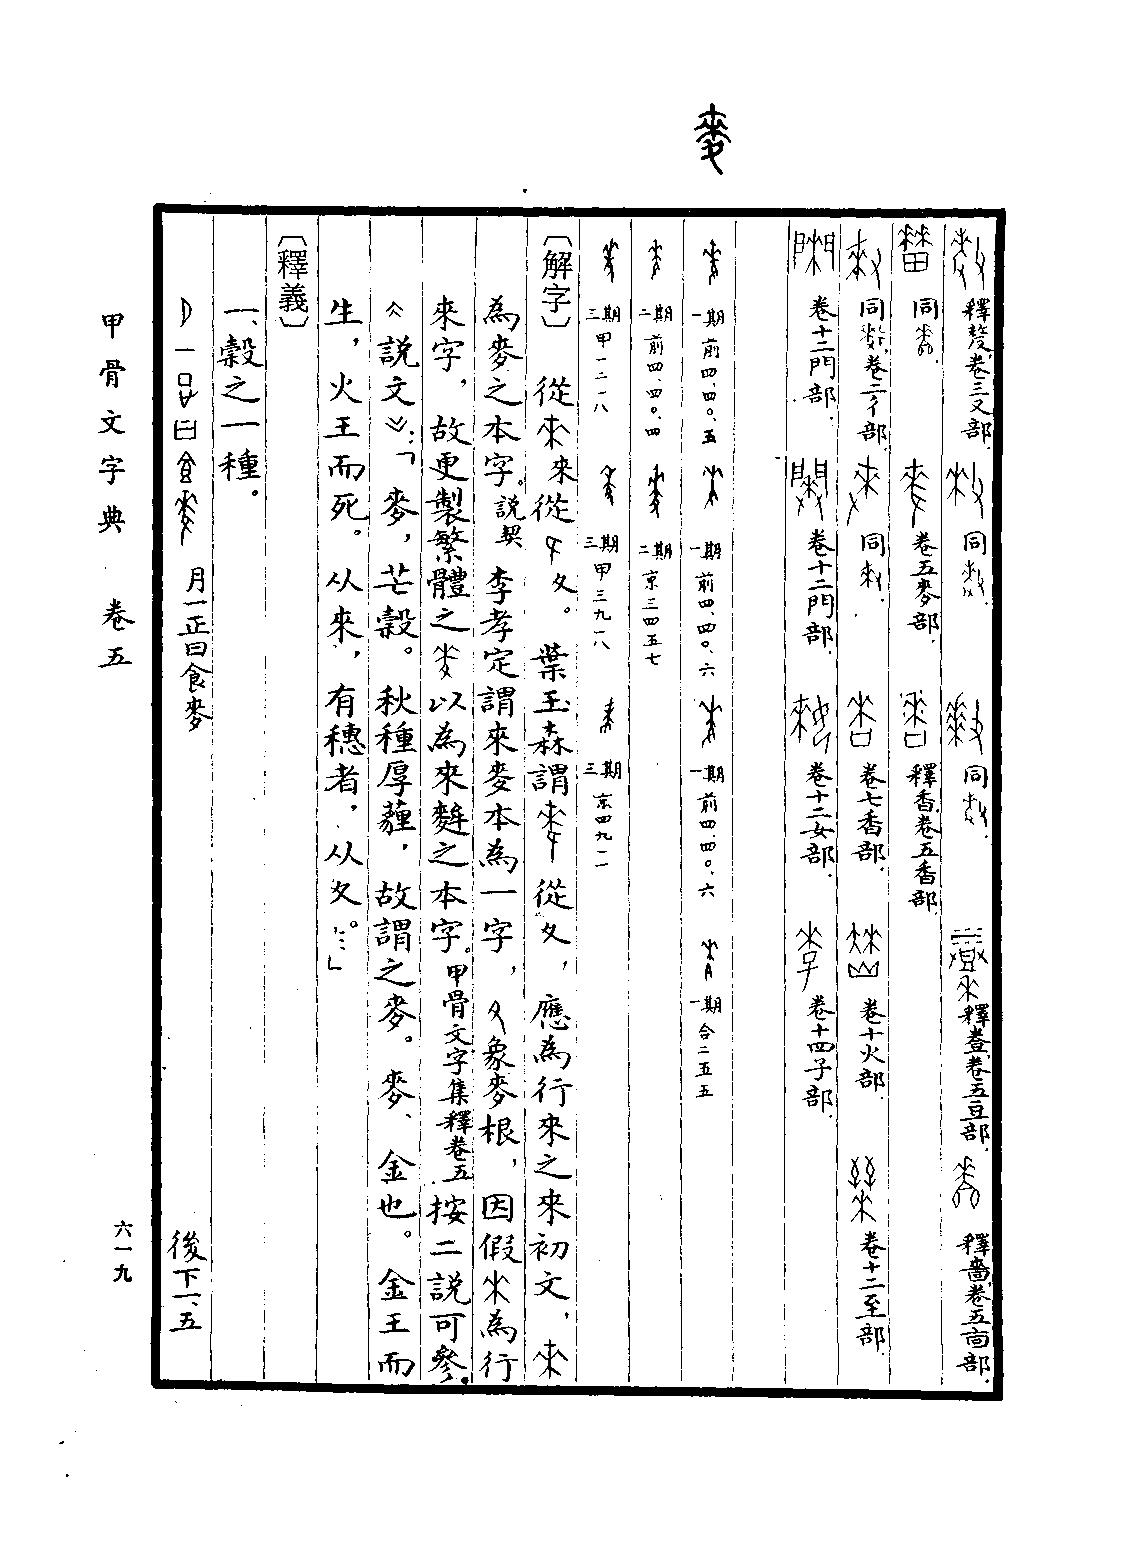 麥
釋𠭰卷三又部. 同. 同. 釋登卷五豆部. 釋嗇卷五㐭部.
同. 卷五麥部. 釋香卷五香部.
同卷二彳部. 同. 卷七香部. 卷十火部. 卷十二至部
卷十二門部. 卷十二門部. 卷十二女部. 卷十四子部.
一期 前四、四〇、五 一期 前四、四〇、六 一期 前四、四〇、六 一期 合二五五
二期 前四、四〇、四 二期 京三四五七
三期 甲一二一八 三期 甲三九一八 三期 京四九一二
〔解字〕 從來從夊。葉玉森謂從夊,應為行來之來初文,來
為麥之本字。說契 李孝定謂來麥本為一字,夊象麥根,因假來為行
來字,故更製繁體之以為來麰之本字。甲骨文字集釋卷五 按二說可參。
《說文》:「麥,芒穀。秋種厚薶,故謂之麥。麥、金也。金王而
生,火王而死。从來,有穗者,从夊。…」
〔釋義〕
一、穀之一種。
月一正曰食麥 後下一、五
甲骨文字典 卷五
六一九